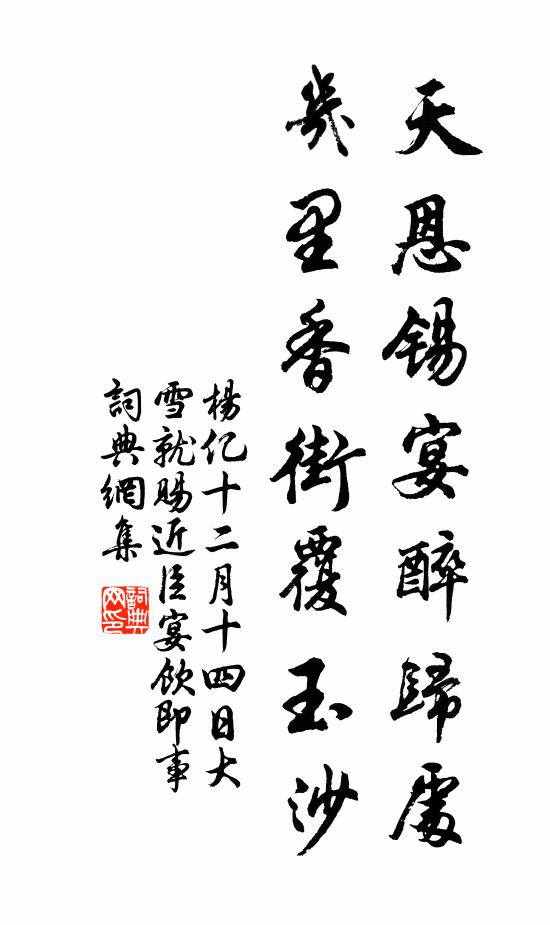 天恩錫宴醉歸處
幾里香街覆玉沙
楊億十二月十四日大
雪就賜近臣宴飲即事
詞典網集
詞典网印